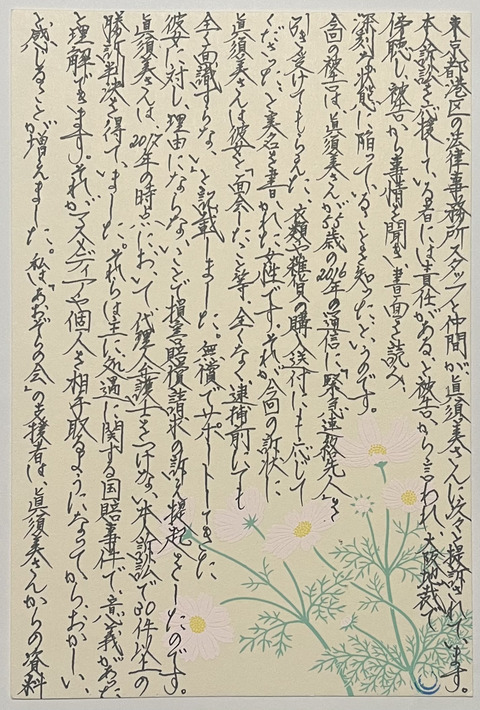 東京都港区の法律事務所スタッフと仲間が眞須美さんに次々と提訴されています。
本人訴訟を支援している者には責任がある、と被告から言われ、大阪地裁で
傍聴し、被告から事情を聞き書面を読み、
深刻な状態に陥っていることを知ったというのです。
今回の被告は、眞須美さんが55歳の2016年の通信に、「緊急連絡先人」を
引き受けてもらえた、衣類や雑貨の購入送付にも応じて
くださった、と実名を書かれた女性です。それが今回の訴状に
眞須美さんは彼女と「面会したこと等、全くなく、逮捕前にしても
全く面識すらない」と記載しました。無償でサポートしてきた
彼女に対し、理由にならないことで損害賠償請求の訴え提起をしたのです。
眞須美さんは、2017年の時点において、代理人弁護士をつけない本人訴訟で30件以上の
勝訴判決を得ていました。それらは主に処遇に関する国賠事件で、意義があった
と理解できます。それがマスメディアや個人を相手取るようになってから、おかしい、
と感じることが増えました。私は「あおぞらの会」の支援者は、眞須美さんからの資料